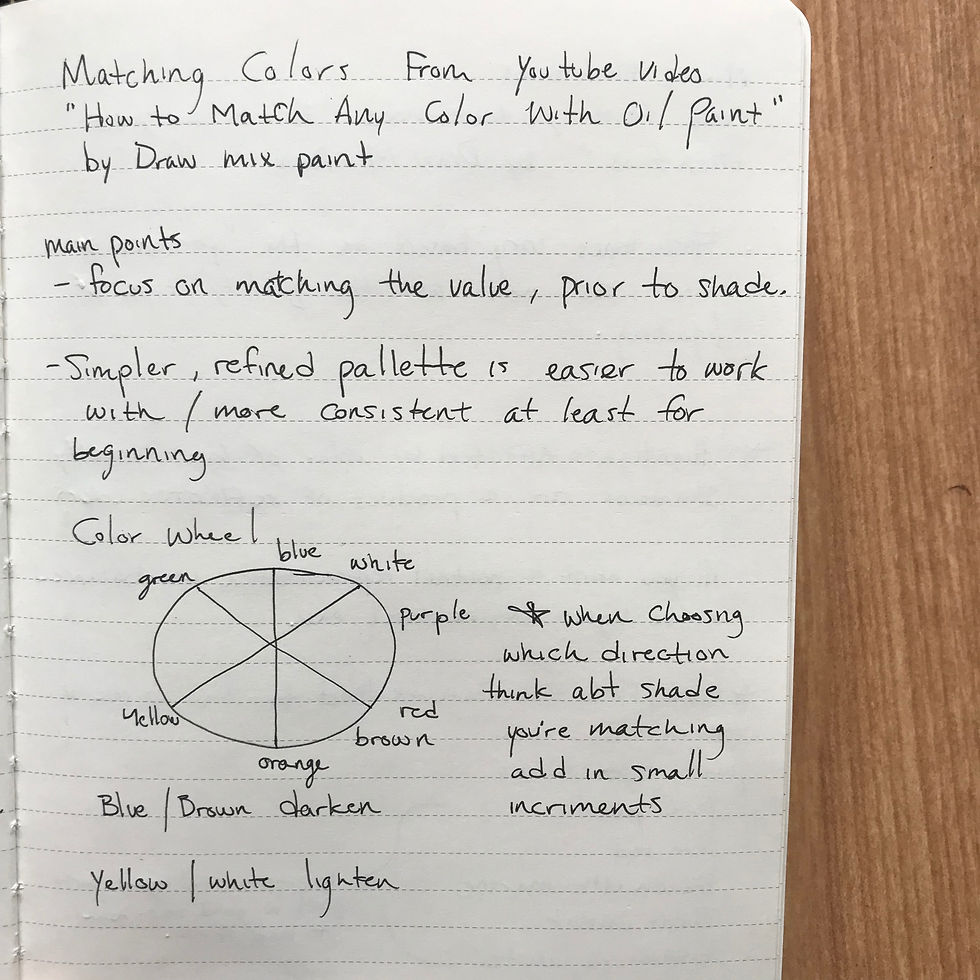 Matching Colors From Youtube video
"How to Match Any Color With Oil Paint"
by Draw mix paint
main points
- focus on matching the value, prior to shade.
- Simpler, refined pallette is easier to work
with / more consistent at least for
beginning
Color wheel
blue
white
green
purple
yellow
red
brown
orange
☆ when choosng
which direction
think abt shade
you're matching
add in small
incriments
Blue / Brown darken
Yellow / white lighten